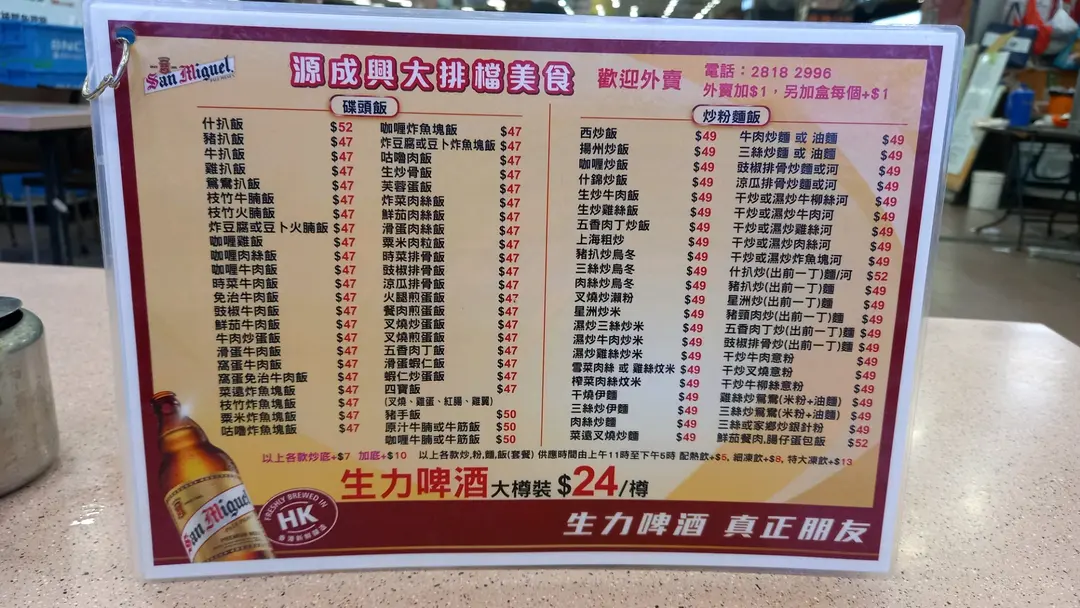 San Miguel
源成興大排檔美食
歡迎外賣
電話：2818 2996
外賣加$1，另加盒每個+$1
碟頭飯
什扒飯 $52
豬扒飯 $47
牛扒飯 $47
雞扒飯 $47
鴛鴦扒飯 $47
枝竹牛腩飯 $47
枝竹火腩飯 $47
炸豆腐或豆卜火腩飯 $47
咖喱雞飯 $47
咖喱肉絲飯 $47
咖喱牛肉飯 $47
時菜牛肉飯 $47
免治牛肉飯 $47
豉椒牛肉飯 $47
鮮茄牛肉飯 $47
牛肉炒蛋飯 $47
滑蛋牛肉飯 $47
窩蛋牛肉飯 $47
窩蛋免治牛肉飯 $47
菜遠炸魚塊飯 $47
枝竹炸魚塊飯 $47
粟米炸魚塊飯 $47
咕嚕炸魚塊飯 $47
咖喱炸魚塊飯 $47
炸豆腐或豆卜炸魚塊飯 $47
咕嚕肉飯 $47
生炒骨飯 $47
芙蓉蛋飯 $47
炸菜肉絲飯 $47
鮮茄肉絲飯 $47
滑蛋肉絲飯 $47
粟米肉粒飯 $47
時菜排骨飯 $47
豉椒排骨飯 $47
涼瓜排骨飯 $47
火腿煎蛋飯 $47
餐肉煎蛋飯 $47
叉燒炒蛋飯 $47
叉燒煎蛋飯 $47
五香肉丁飯 $47
滑蛋蝦仁飯 $47
蝦仁炒蛋飯 $47
四寶飯 $47
(叉燒、雞蛋、紅腸、雞翼)
豬手飯 $50
原汁牛腩或牛筋飯 $50
咖喱牛腩或牛筋飯 $50
炒粉麵飯
西炒飯 $49
揚州炒飯 $49
咖喱炒飯 $49
什錦炒飯 $49
生炒牛肉飯 $49
生炒雞絲飯 $49
五香肉丁炒飯 $49
上海粗炒 $49
豬扒炒烏冬 $49
三絲炒烏冬 $49
肉絲炒烏冬 $49
叉燒炒瀨粉 $49
星洲炒米 $49
濕炒三絲炒米 $49
濕炒牛肉炒米 $49
濕炒雞絲炒米 $49
雪菜肉絲 或 雞絲炆米 $49
榨菜肉絲炆米 $49
干燒伊麵 $49
三絲炒伊麵 $49
肉絲炒麵 $49
菜遠叉燒炒麵 $49
牛肉炒麵 或 油麵 $49
三絲炒麵 或 油麵 $49
豉椒排骨炒麵或河 $49
涼瓜排骨炒麵或河 $49
干炒或濕炒牛柳絲河 $49
干炒或濕炒牛肉河 $49
干炒或濕炒雞絲河 $49
干炒或濕炒肉絲河 $49
干炒或濕炒炸魚塊河 $49
什扒炒(出前一丁)麵/河 $52
豬扒炒(出前一丁)麵 $49
星洲炒(出前一丁)麵 $49
豬頭肉炒(出前一丁)麵 $49
五香肉丁炒(出前一丁)麵 $49
豉椒排骨炒(出前一丁)麵 $49
干炒牛肉意粉 $49
干炒叉燒意粉 $49
干炒牛柳絲意粉 $49
雞絲炒鴛鴦(米粉+油麵) $49
三絲炒鴛鴦(米粉+油麵) $49
三絲或家鄉炒銀針粉 $49
鮮茄餐肉,腸仔蛋包飯 $52
以上各款炒底+$7 加底+$10 以上各款炒,粉,麵,飯(套餐) 供應時間由上午11時至下午5時 配熱飲+$5, 細凍飲+$8, 特大凍飲+$13
生力啤酒大樽裝 $24/樽
San Miguel
FRESHLY BREWED IN
HK
生力啤酒 真正朋友